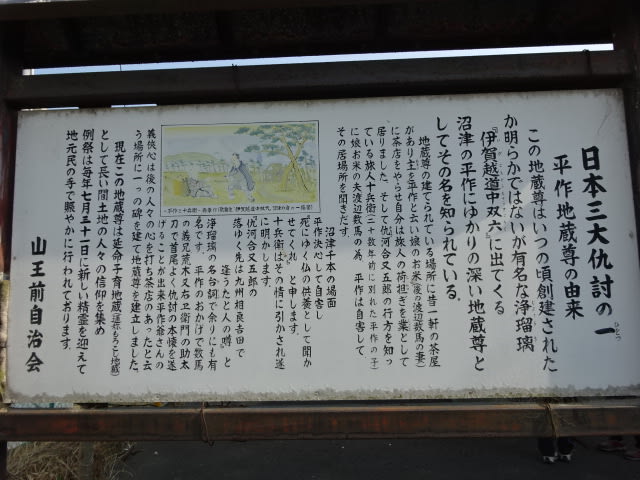 日本三大仇討の一
ひとつ
平作地蔵尊の由来
この地蔵尊はいつの頃創建された
か明らかではないが有名な浄瑠璃
『伊賀越道中双六』に出てくる
沼津の平作にゆかりの深い地蔵尊と
してその名を知られている。
地蔵尊の建てられている場所に昔一軒の茶屋
があり主を平作と云い娘のお米(後の渡辺数馬の妻)
に茶店をやらせ自分は旅人の荷担ぎを業として
居りました、そして仇河合又五郎の行方を知っ
ている旅人十兵衛(二十数年前に別れた平作の子)
に娘お米の夫渡辺数馬の為、平作は自害して
その居場所を聞きだす。
沼津千本の場面
平作決心して自害し
死にゆく仏の供養として聞か
せてくれ、と申します。
十兵衛はその情に引かされ遂
に明かします。
仇河合又五郎の
落ちゆく先は九州相良吉田で
逢うたと人の噂、と
浄瑠璃の名台詞で余りにも有
名です。平作のおかげで数馬
の義兄荒木又右ヱ衛門の助太
刀で首尾よく仇討の本懐を遂
げることが出来平作爺さんの
義侠心は後の人々の心を打ち茶店のあったと云
う場所に一つの碑を建て地蔵尊を建立しました。
現在この地蔵尊は延命子育地蔵(一名もろこし地蔵)
として長い間土地の人々の信仰を集め
例祭は毎年七月三十一日に新しい精霊を迎えて
地元民の手で賑やかに行われております。
山王前自治会